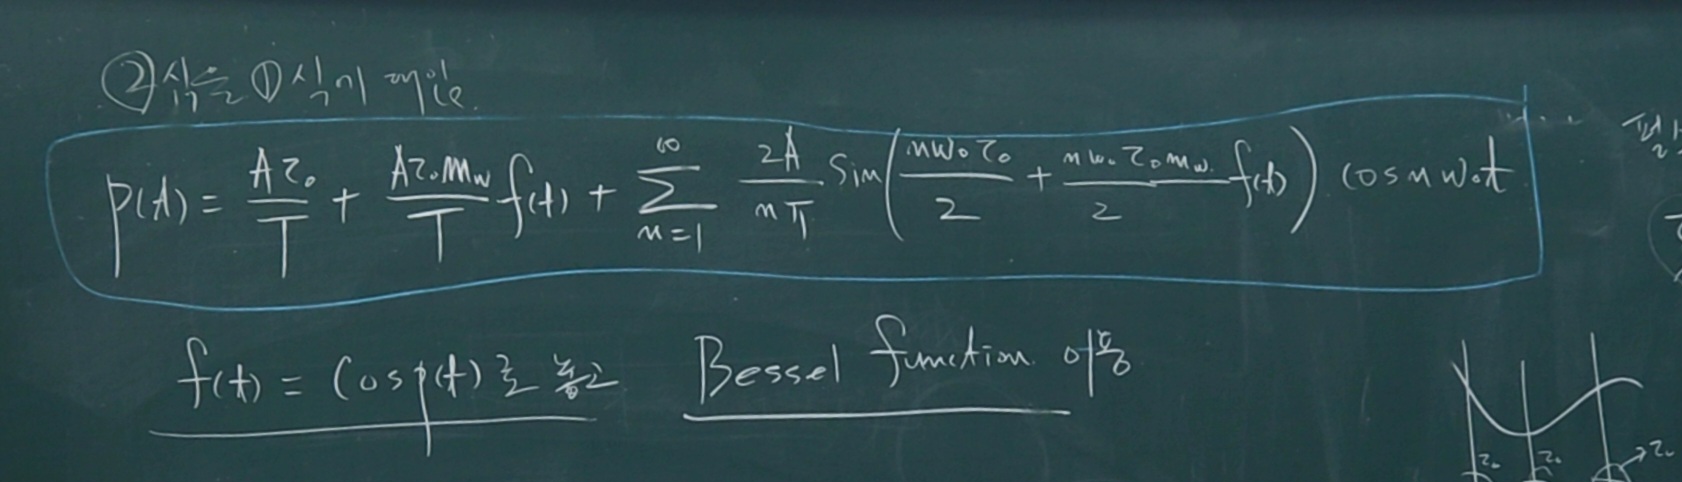 ②식을 ①식에 대입.
p(t) = Aτ₀/T + Aτ₀m_w/T f(t) + ∞∑n=1 2A/nπ Sin(nω₀τ₀/2 + nω₀τ₀m_w/2 f(t)) cos nω₀t
f(t) = cos p(t)로 놓고 Bessel function 이용
τ₀ τ₀ → τ₀